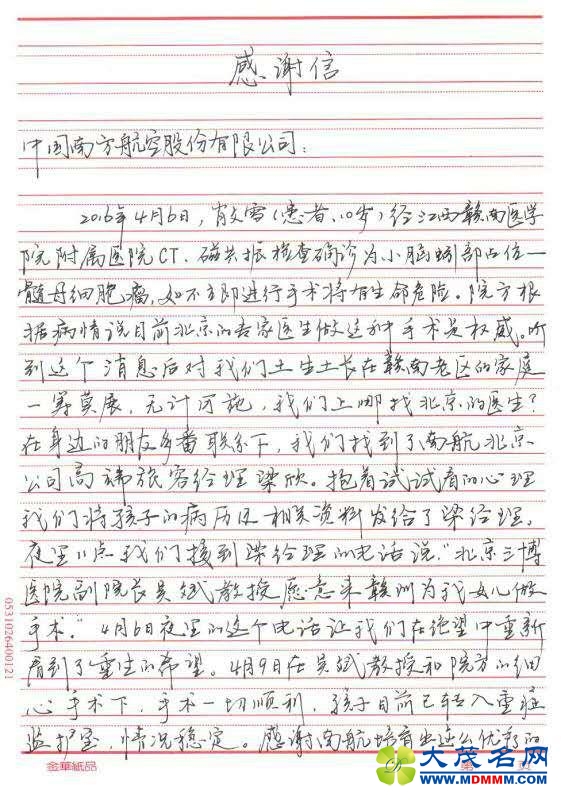 感谢信
中国南方航空股份有限公司:
2016年4月6日,肖文雪(患者,10岁)经江西赣南医学
院附属医院CT、磁共振检查确诊为小脑蚓部占位—
髓母细胞瘤,如不立即进行手术将有生命危险。院方根
据病情说目前北京的专家医生做这种手术最权威。听
到这个消息后对我们土生土长在赣南老区的家庭
一筹莫展,无计可施,我们上哪找北京的医生?
在身边的朋友多番联系下,我们找到了南航北京
公司高端旅客经理梁欣。抱着试试看的心理
我们将孩子的病历及相关资料发给了梁经理。
夜里11点我们接到梁经理的电话说,"北京三博
医院副院长吴斌教授愿意来赣州为我女儿做
手术。"4月6日夜里的这个电话让我们在绝望中重新
看到了重生的希望。4月9日在吴斌教授和院方的细
心手术下,手术一切顺利,孩子目前已转入重症
监护室,情况稳定。感谢南航培育出这么优秀的
0531026400121
金華紙品
第 页
大茂名网
www.MDMMM.com